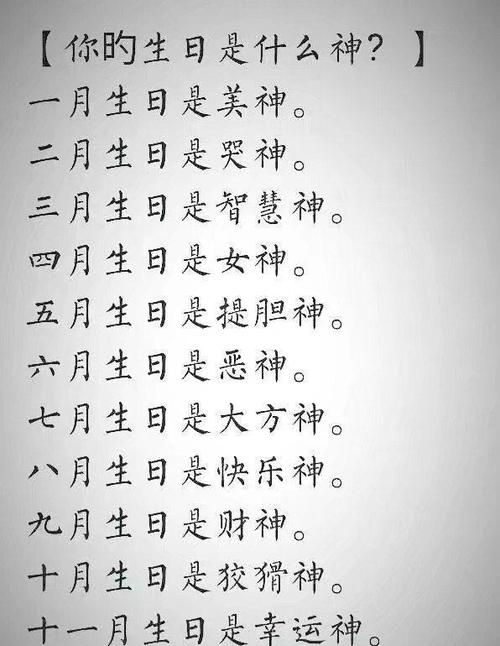 【你旳生日是什么神？】
一月生日是美神。
二月生日是哭神。
三月生日是智慧神。
四月生日是女神。
五月生日是提胆神。
六月生日是恶神。
七月生日是大方神。
八月生日是快乐神。
九月生日是财神。
十月生日是狡猾神。
十一月生日是幸运神。